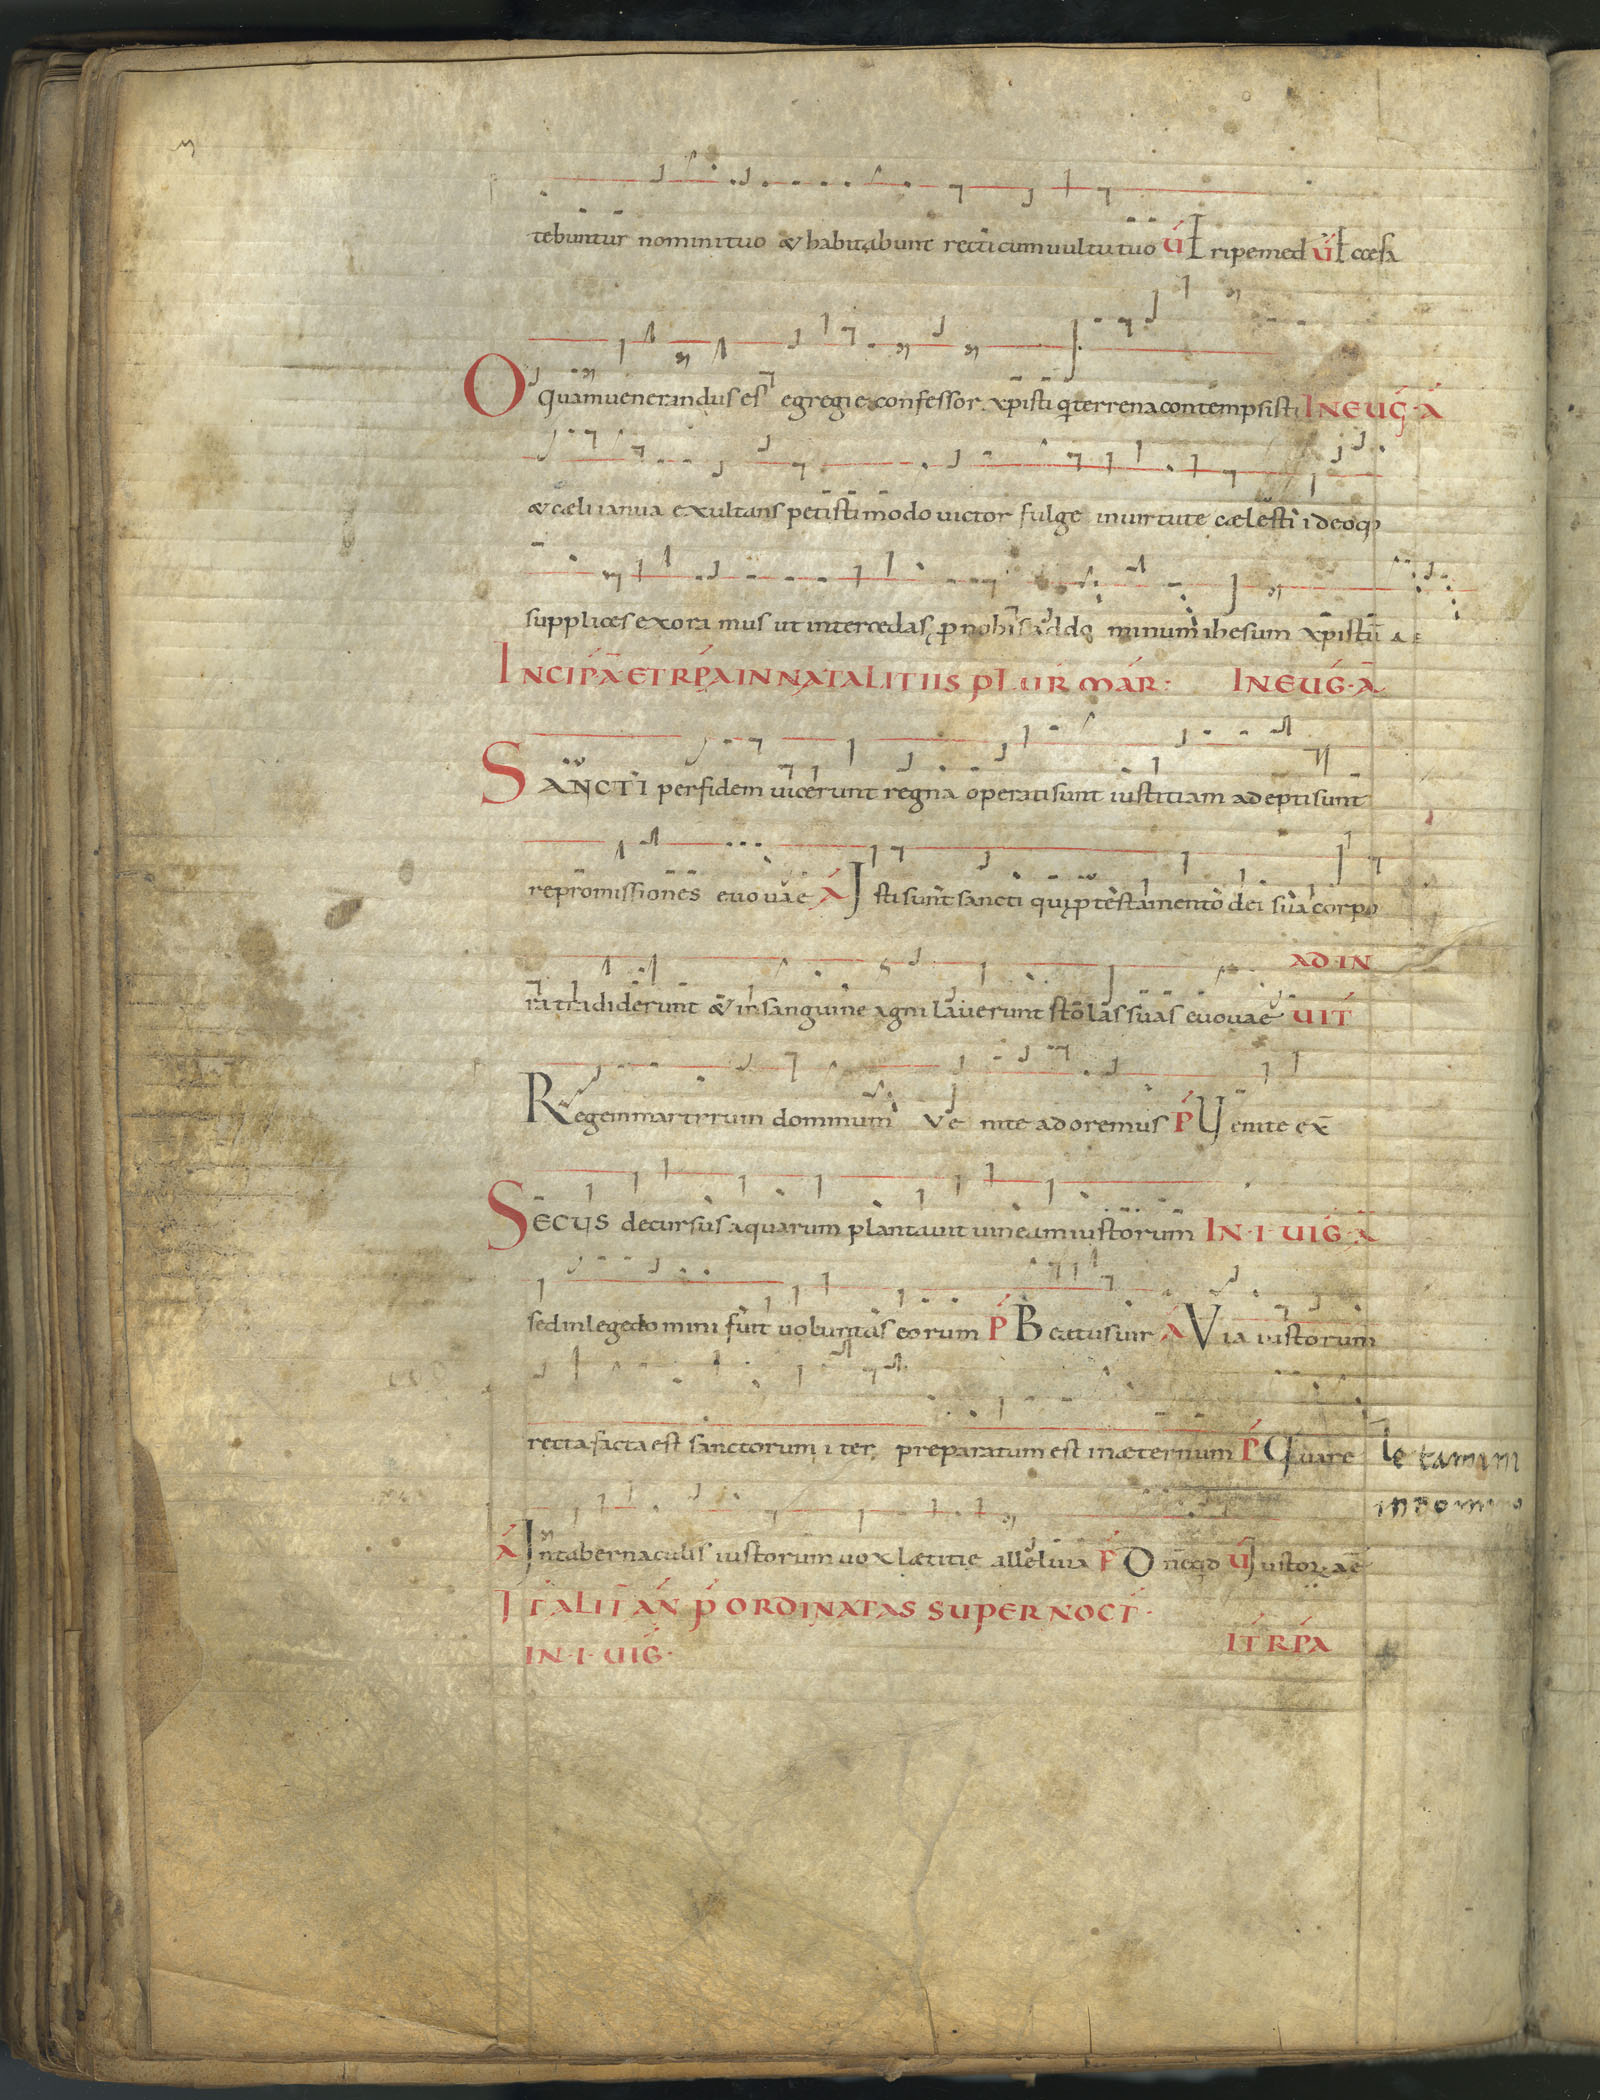 tebuntur nomini tuo & habitabunt recti cum uultu tuo Ṽ Eripe me d Ṽ Et cęcſa
O quam uenerandus es egregie confessor xp̄isti q terrena contempsisti IN EUG· A
& cæli ianua exultans petisti modo uictor fulge in uirtute cælesti ideoq
supplices exoramus ut intercedas p nobis ad do minum ihesum xp̄istū a e
INCIP A ET RPA IN NATALITIIS PLUR MAR: IN EUG· A
SANCTI per fidem uicerunt regna operati sunt iustitiam adepti sunt
repromissiones euouae A Isti sunt sancti qui p testamento dei sua corpo
AD IN
ra tradiderunt & in sanguine agni lauerunt stolas suas euouae UIT
Regem martirum dominum Ve nite adoremus P Venite ex
SECUS decursus aquarum plantauit uineam iustorum IN· I· UIG· A
sed in lege domini fuit uoluntas eorum P Beatus uir A Via iustorum
recta facta est sanctorum iter preparatum est in æternum P Quare
letamini
in domino
A In tabernaculis iustorum uox lætitie alleluia P D ne qd Ṽ Iustor· aē
IT ALIT AN P ORDINATAS SUPER NOCT·
IN· I· UIG· IT RPA